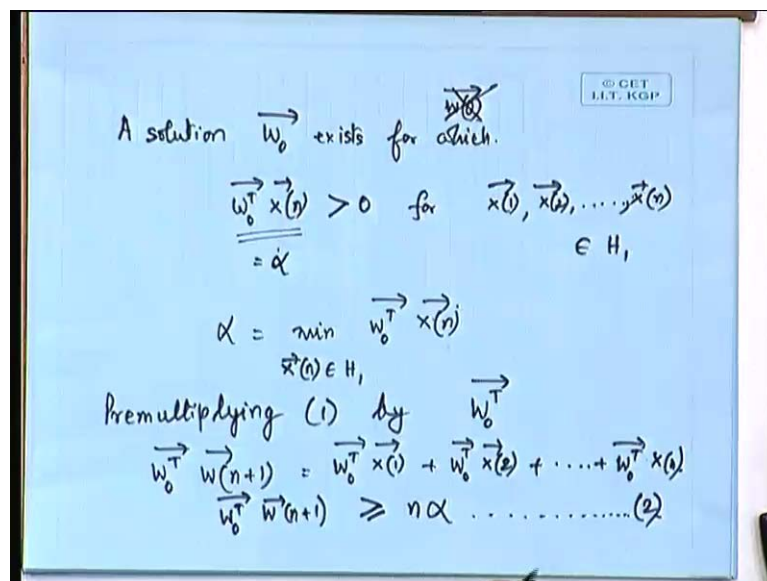 © CET
I.I.T. KGP
A solution w₀ exists for which.
w₀ᵀ x(n) > 0 for x(1), x(2), ....., x(n)
= α ∈ H₁
α = min w₀ᵀ x(n)
x(n) ∈ H₁
Premultiplying (1) by w₀ᵀ
w₀ᵀ w(n+1) = w₀ᵀ x(1) + w₀ᵀ x(2) + ..... + w₀ᵀ x(n).
w₀ᵀ w(n+1) ≥ nα ................(2)